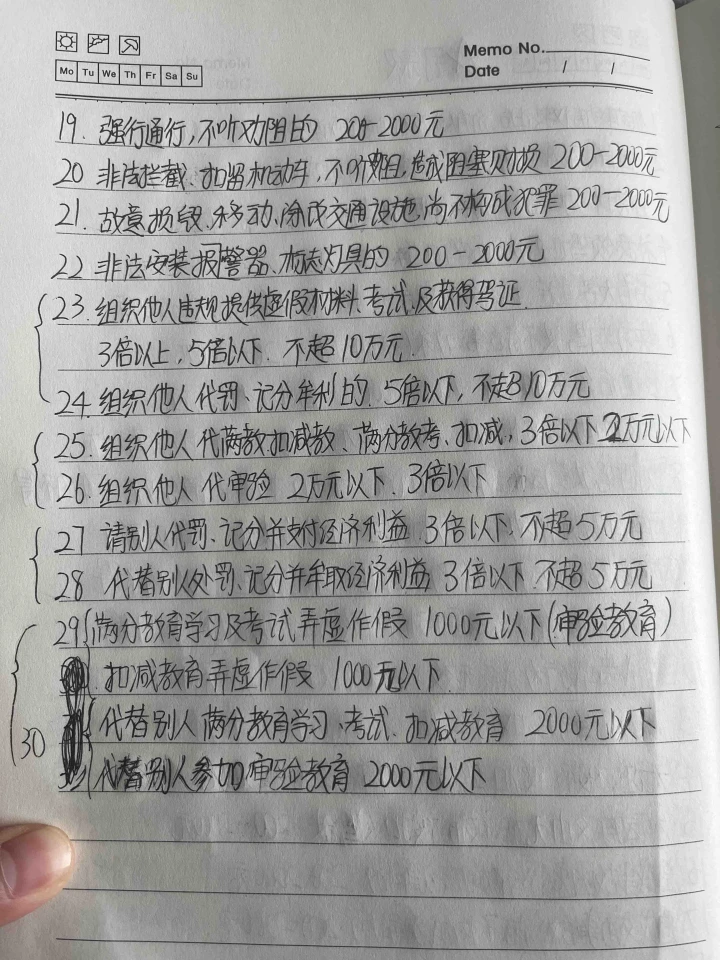 Memo No.
Mo Tu We Th Fr Sa Su
Date / /
19. 强行通行,不听劝阻的 200-2000元
20 非法拦截、扣留机动车,不听劝阻,造成阻塞财损 200-2000元
21. 故意损毁、移动、涂改交通设施,尚不构成犯罪 200-2000元
22 非法安装报警器、标志灯具的 200-2000元
23. 组织他人违规提供虚假材料、考试、及获得驾证.
3倍以上,5倍以下. 不超10万元.
24. 组织他人代罚、记分牟利的. 5倍以下,不超10万元
25. 组织他人代满教扣减教、满分教考、扣减,3倍以下2万元以下
26. 组织他人代审验 2万元以下.3倍以下
27 请别人代罚、记分并支付经济利益.3倍以下,不超5万元
28 代替别人处罚、记分并牟取经济利益 3倍以下.不超5万元
29 满分教育学习及考试弄虚作假 1000元以下(审验教育)
扣减教育弄虚作假 1000元以下.
代替别人满分教育学习、考试、扣减教育 2000元以下
30 代替别人参加审验教育 2000元以下